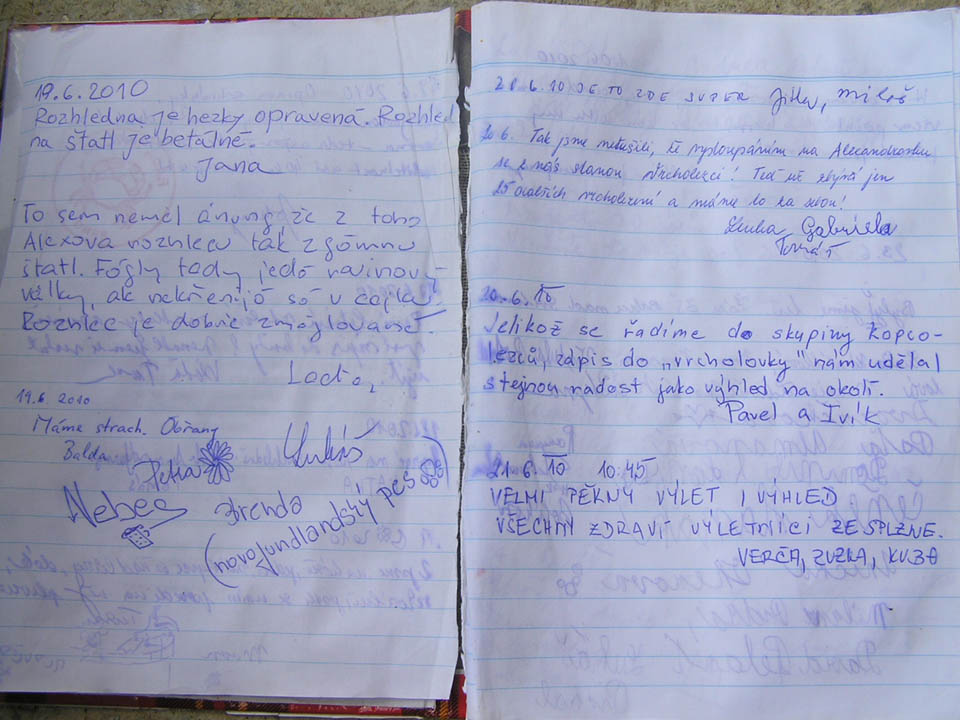 19.6.2010
Rozhledna je hezky opravená. Rozhled
na štatl je betálné.
Jana
To sem neměl ánung, že z toho
Alexova rozhlecu tak zgómnu
štatl. Fógly tady jedó
války, ak nekřenijó só v cajku.
Rozhlec je dobřé zmajlované.
19.6 2010
Máme strach. Obřany
Balda
Petra
Lukáš
Nebes
Brenda
(novofundlandský pes)
20.6.10 JE TO ZDE SUPER Jitka, Miloš
20.6. Tak jsme netušili, že vyšloupáním na Alexandrovku
se z nás stanou vrcholezci! Teď už zbývá jen
25 dalších vrcholezení a máme to za sebou!
Gabriela
Tomáš
20.6.10
Jelikož se řadíme do skupiny kopco-
lezců, zápis do "vrcholovky" nám udělal
stejnou radost jako výhled na okolí.
Pavel a Ivík
21.6.10 10.45
VELMI PĚKNÝ VÝLET I VÝHLED
VŠECHNY ZDRAVÍ VÝLETNÍCI ZE SPLZNĚ.
VERČA, ZUZKA, KUBA